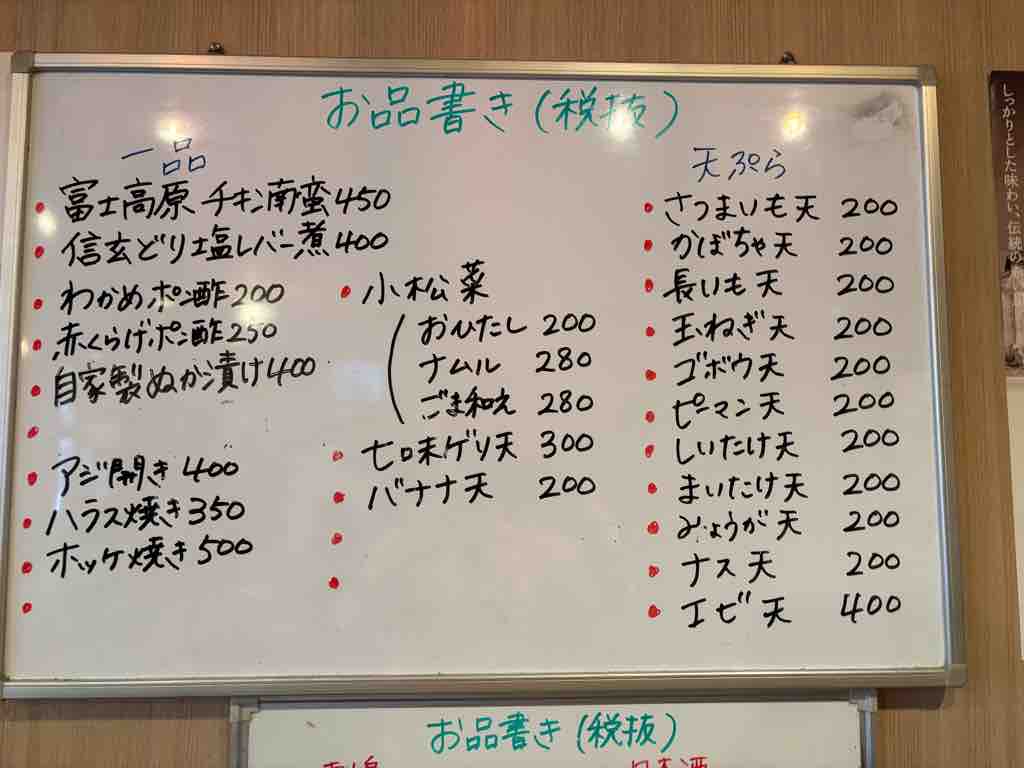 お品書き(税抜)
一品
・富士高原チキン南蛮450
・信玄どり塩レバー煮400
・わかめポン酢200
・赤くらげポン酢250
・自家製ぬか漬け400
・アジ開き400
・ハラス焼き350
・ホッケ焼き500
・小松菜
おひたし 200
ナムル 280
ごま和え 280
・七口味ゲソ天 300
・バナナ天 200
天ぷら
・さつまいも天 200
・かぼちゃ天 200
・長いも天 200
・玉ねぎ天 200
・ゴボウ天 200
・ピーマン天 200
・しいたけ天 200
・まいたけ天 200
・みょうが天 200
・ナス天 200
・エビ天 400
お品書き(税抜)
日本酒
しっかりとした味わい、伝統の